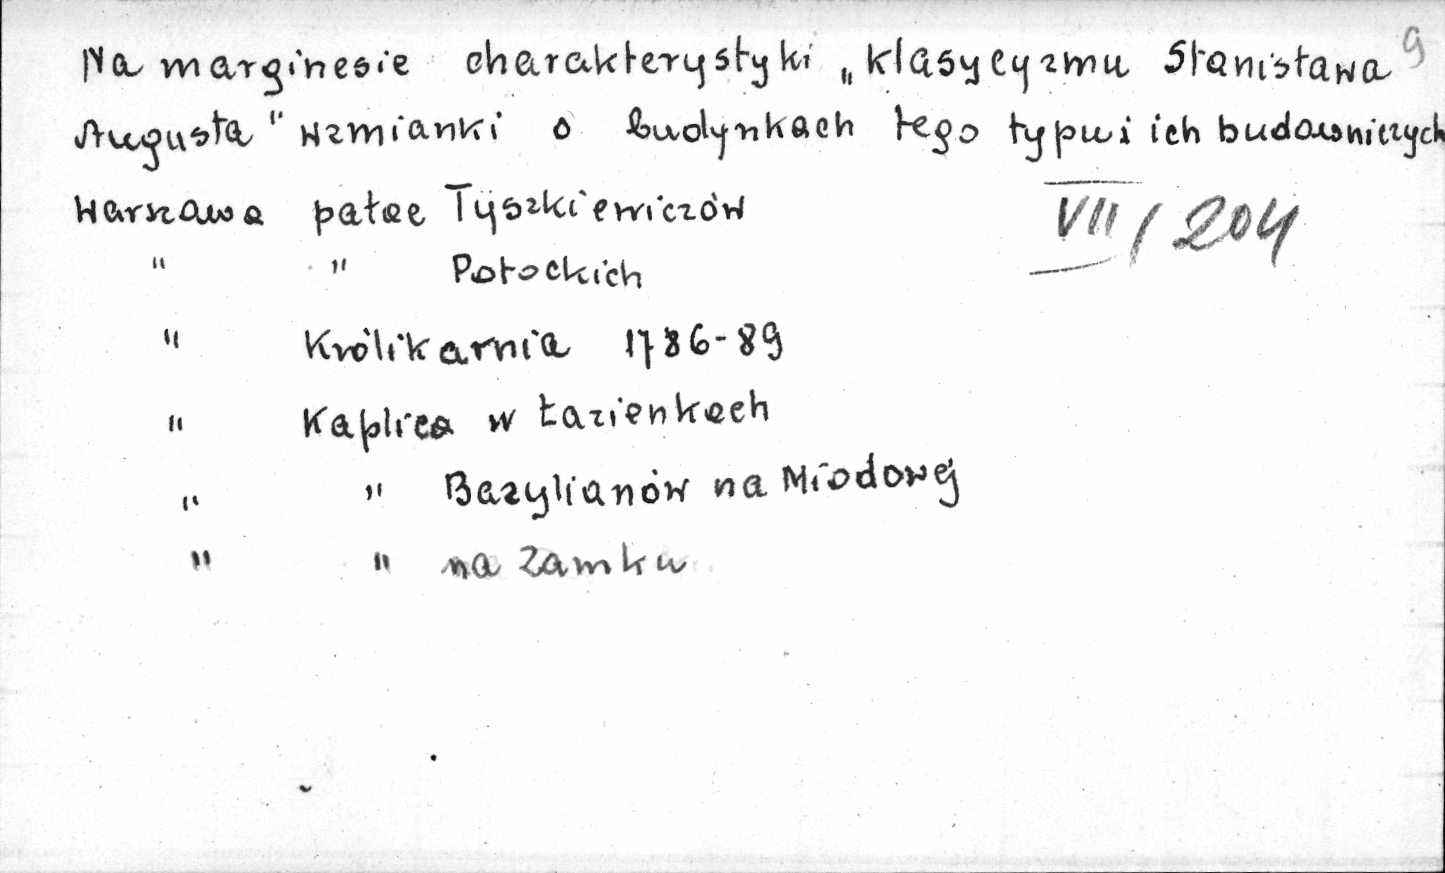 9
Na marginesie charakterystyki „klasycyzmu Stanisława
Augusta" wzmianki o budynkach tego typu i ich budowniczych
Warszawa pałac Tyszkiewiczów
VII/204
" " Potockich
" Królikarnia 1786-89
" Kaplica w Łazienkach
" " Bazylianów na Miodowej
" " na Zamku